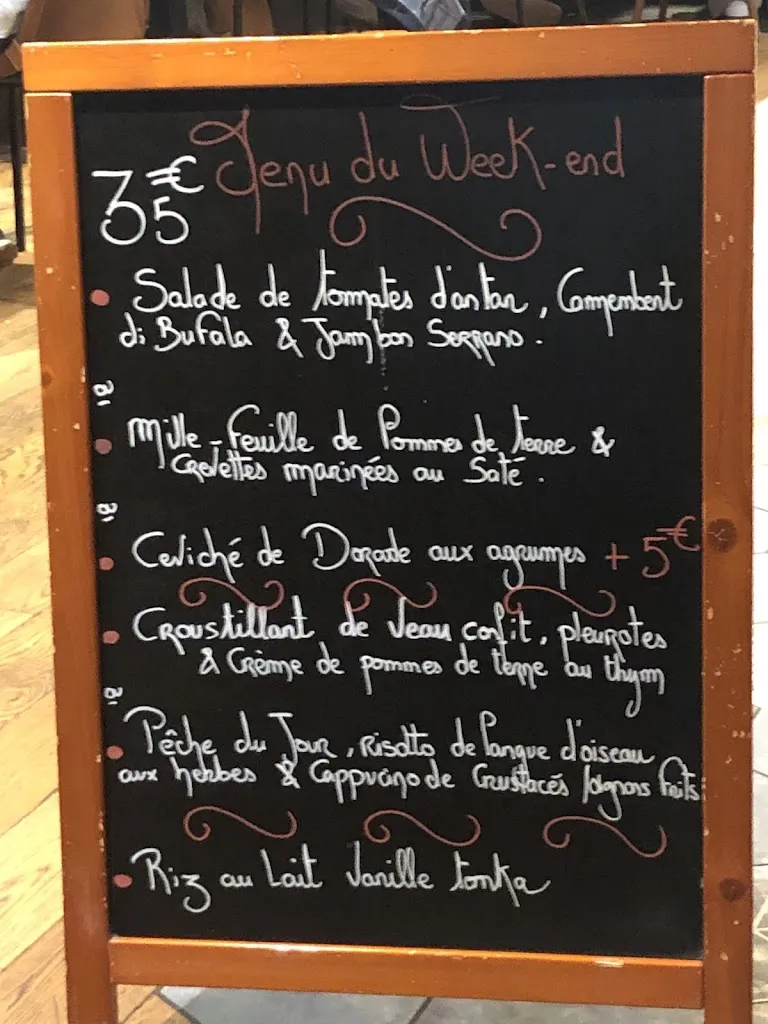 35€ Menu du Week-end
• Salade de tomates d'antan, Camembert
di Bufala & Jambon Serrano.
• Mille-feuille de Pommes de terre &
Crevettes marinées au Saté.
• Ceviché de Dorade aux agrumes + 5€
• Croustillant de veau confit, pleurotes
& Crème de pommes de terre au thym
• Pêche du Jour, Risotto de langue d'oiseau
aux herbes & Cappucino de Crustacés /oignons frits
• Riz au Lait Vanille tonka